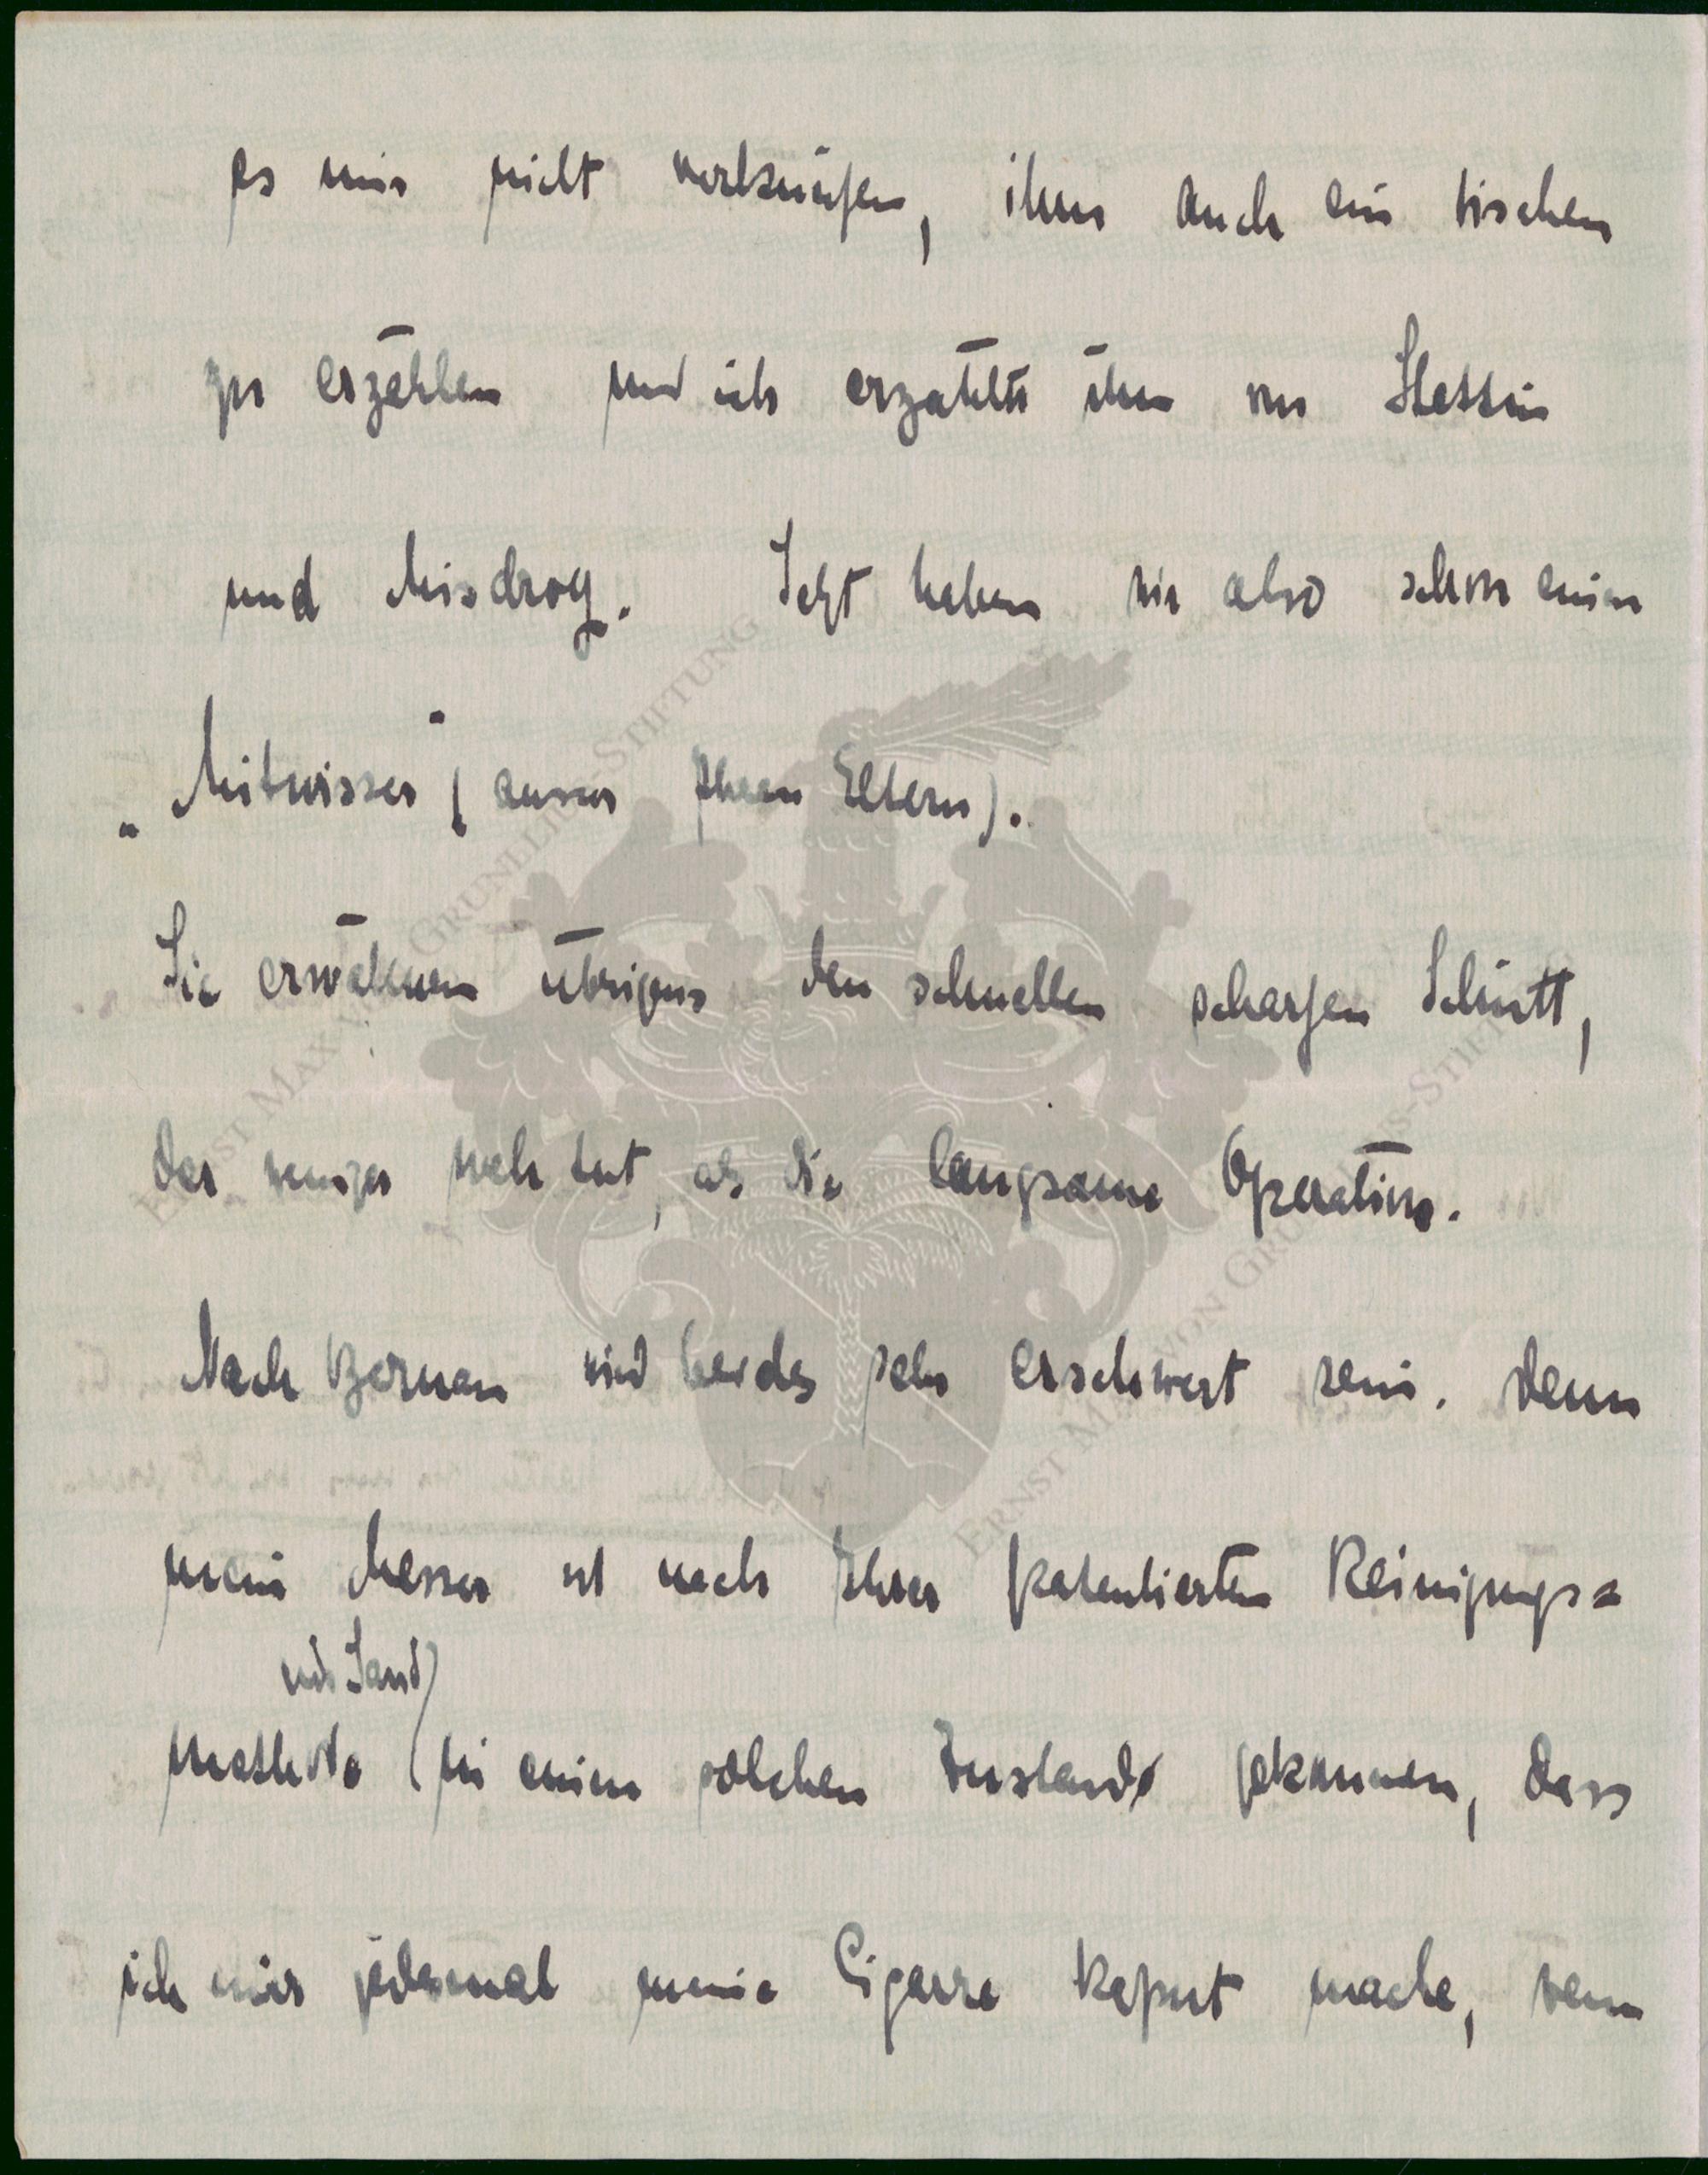 es mir nicht verkneifen, ihm auch ein bischen
zu erzählen und ich erzählte ihm von Stettin
und Misdroy. Jetzt haben wir also schon einen
„Mitwisser" (ausser Ihren Eltern).
Sie erwähnen übrigens den schnellen scharfen Schnitt,
der weniger weh tut, als die langsame Operation.
Nach wird beides sehr erschwert sein. Denn
mein Messer ist nach Ihrer patentierten Reinigungs=
mit Sand)
methode (in einen solchen Zustand gekommen, dass
ich mir jedesmal meine Cigarre kaput mache, wenn
ERNST MAX VON GRUNELIUS-STIFTUNG
ERNST MAX VON GRUNELIUS-STIFTUNG